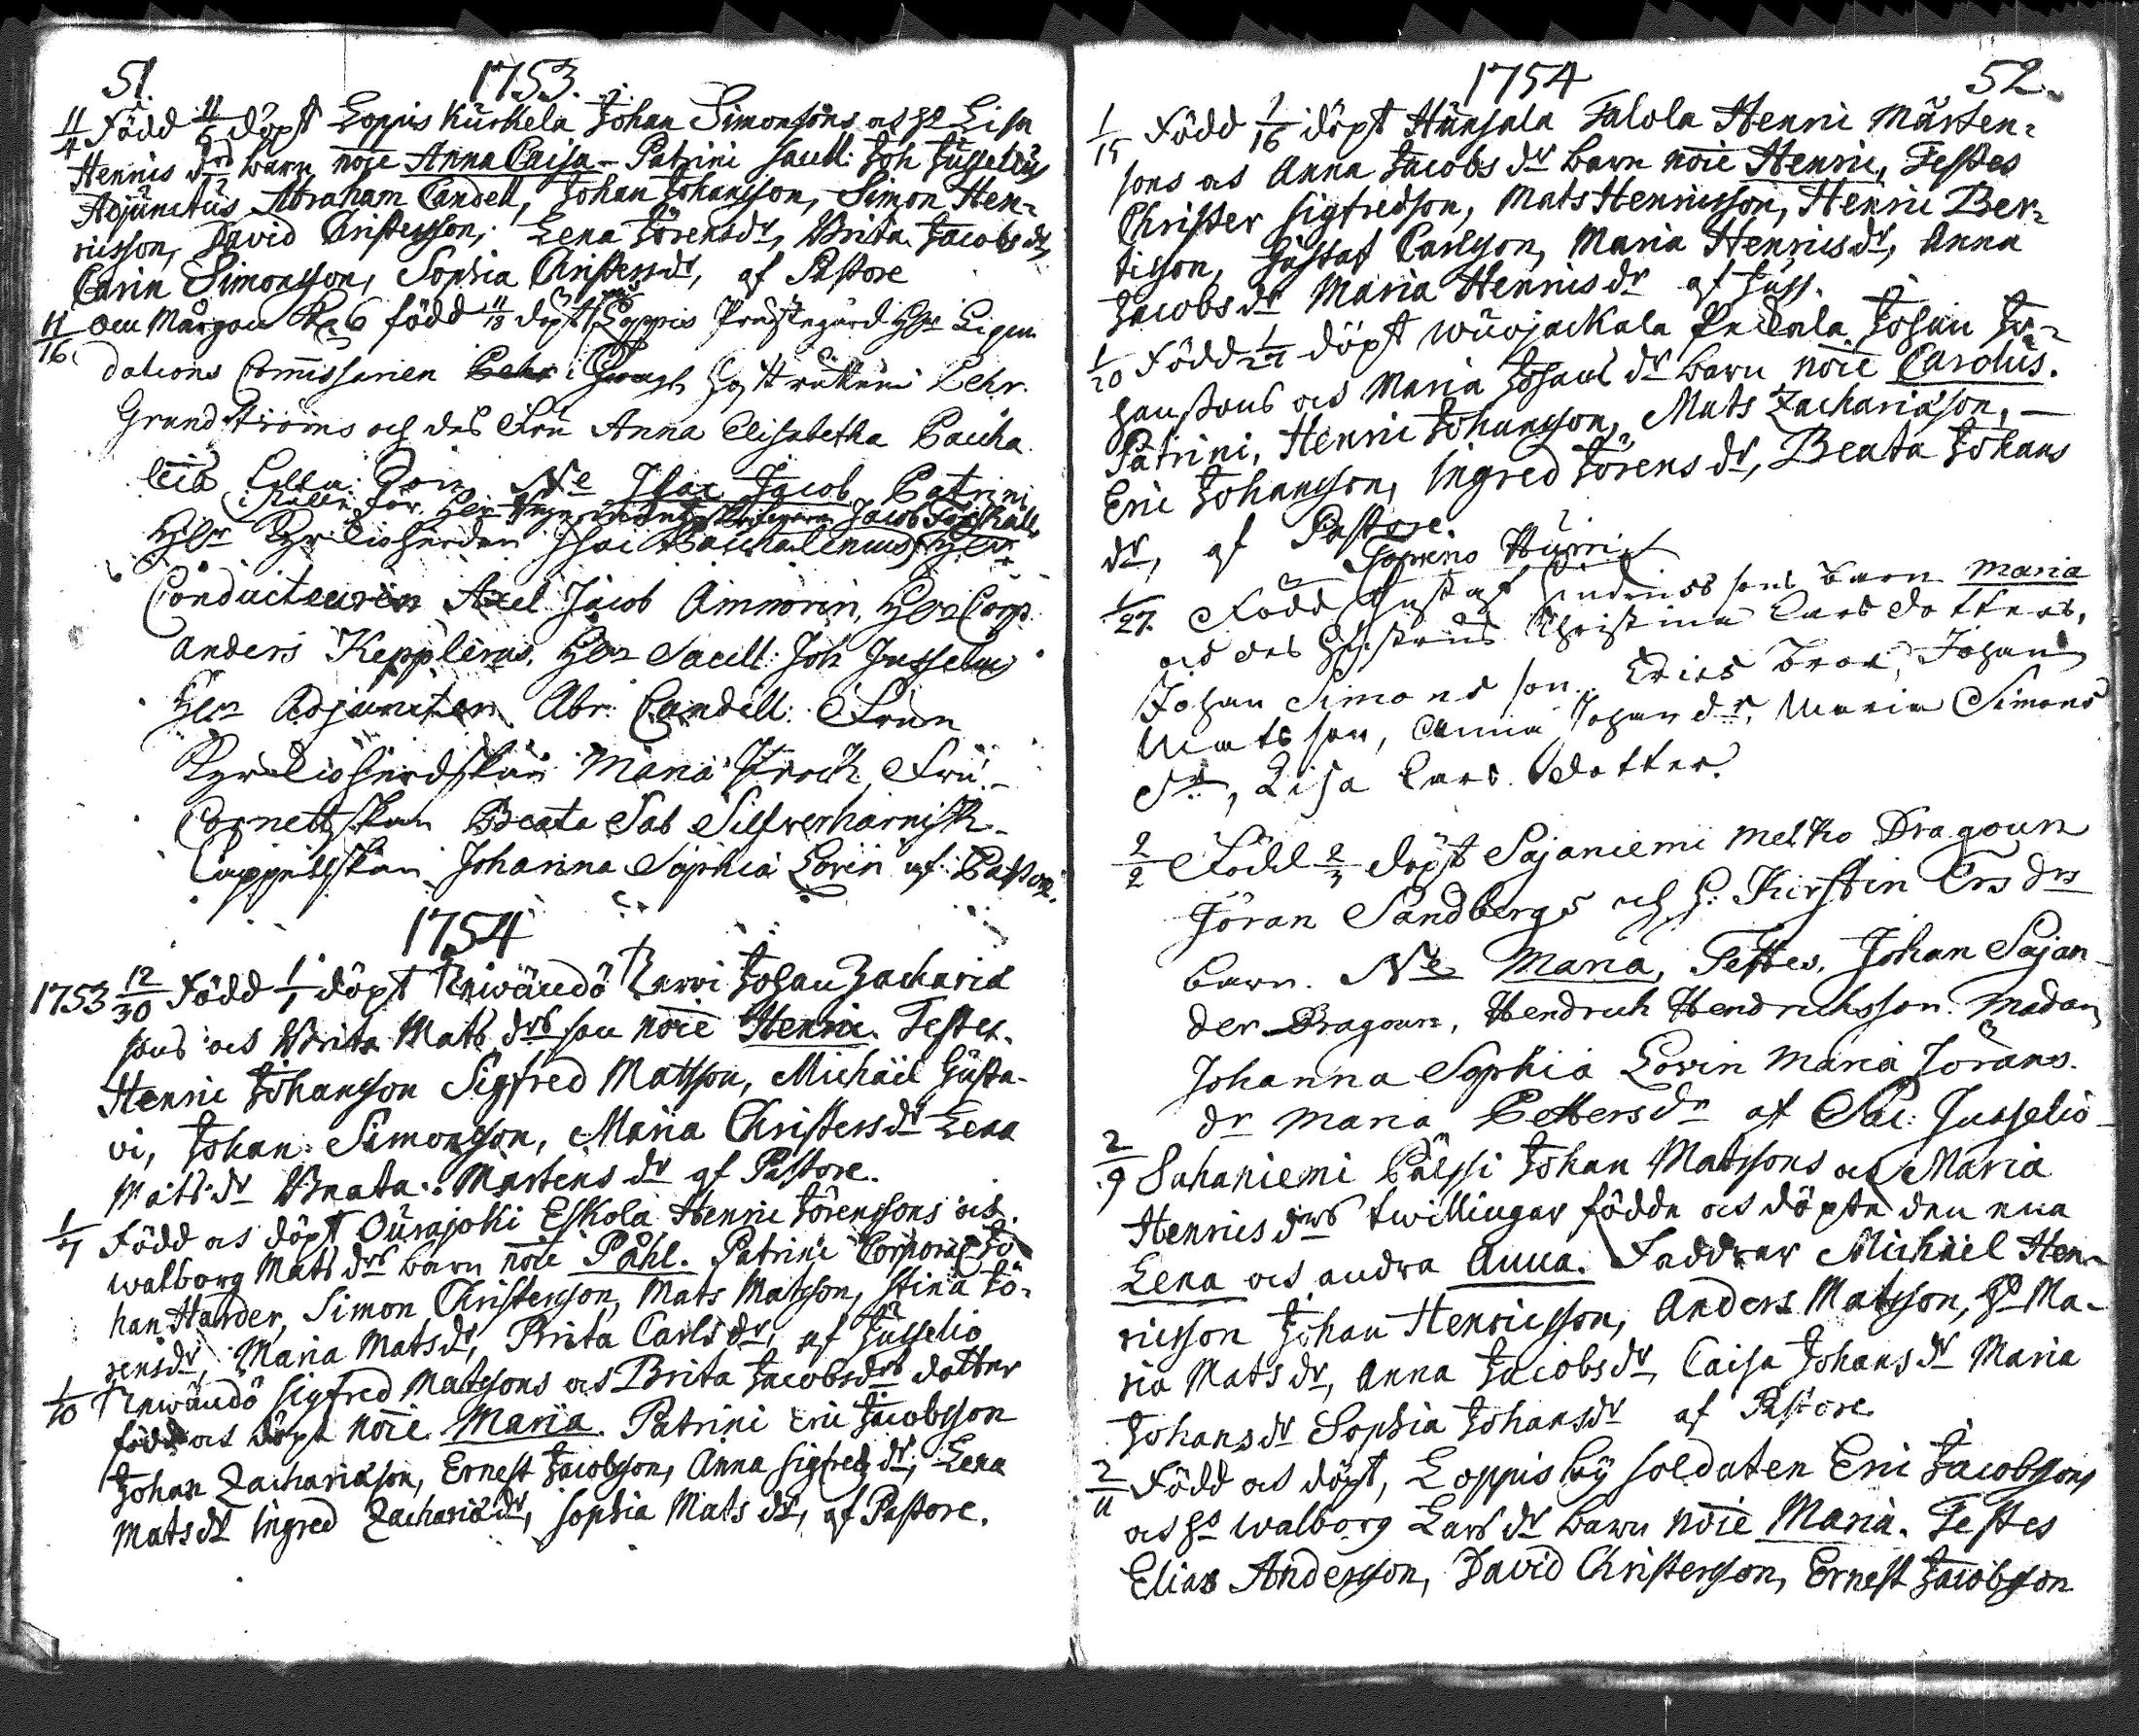 51. 1753.
11/4 Född 11/5 döpt Loppis Kuskela Johan Simonsons as ho Lisa
Hennis drs barn noie Anna Caisa – Patrini Sacell: Joh Jusselius
Adjunctus Abraham Candell, Johan Johansson, Simon Hen-
ricsson, David Christersson, Lena Jörens dr, Brita Jacobs dr,
Carin Simonsson, Sophia Christers dr, af Pastore
11/16 om Morgon Kl. 6 född 11/18 döpt Loppis Prästegård Hr Liqui
dations Commissarien Pehr
Grundströms och des Fru Anna Elisabetha Pacha
leia Ne Isac Jacob Patrini
Jacob Forskåll
Hr Kyrkioherden Isac Pachalenius, Her
Conducteuren Axel Jacob Aminorin, Her Corp.
Anders Kepplerus, Her Sacell: Joh Jusselius
Her Adjuncten Abr: Candell: Frun
Kyrkioherdskan Maria Frru
Cornettskan Beata Sab Silfverharnisk
Cappellskan Johanna Sophia Lovin af: Pastore.
1754
1753 12/30 Född 1/1 döpt Kejwändö Karvi Johan Zacharia
sons as Brita Mats drs son noie Henric. Testes.
Henric Johansson Sigfred Matsson, Michäel Gusta-
vi, Johan Simonsson, Maria Christers dr Lena
Mats dr Beata Mårtens dr af Pastore.
1/7 Född as döpt Ourajoki Eskola Henric Jörenssons as
Walborg Mats drs barn noie Påhl. Patrini Corporal Jo
han Harder, Simon Christersson, Mats Matsson, Stina Jö-
rens dr, Maria Mats dr, Brita Carls dr, af Jusselio
1/10 Kejwändö Sigfred Matssons as Brita Jacobs drs dotter
född as döpt noie Maria. Patrini Eric Jacobsson
Johan Zachariasson, Ernest Jacobsson, Anna Sigfreds dr, Lena
Mats dr Ingred Zacharia dr, Sophia Mats dr, af Pastore.
1754 52.
1/15 Född 1/16 döpt Hunsala Talola Henric Mårten-
sons as Anna Jacobs dr barn noie Henric, Testes
Christer Sigfredson, Mats Henricsson, Henric Ber-
tilson, Gustaf Carlsson, Maria Henrics dr, Anna
Jacobs dr Maria Henrics dr af Juss.
1/20 Född 1/21 döpt Wuojackala Johan Jo-
hanssons as Maria Johans dr barn noie Carolus.
Patrini, Henric Johansson, Mats Zachariason, –
Eric Johansson, Ingred Jörens dr, Beata Johans
dr, af Pastore.
1/27. Född Gustaf Hindrics sons barn Maria
as des Hustrus Christina Lars dotters,
Johan Simons son, Erics Johan
Mats son, Anna Johan dr, Maria Simons
dr, Lisa Lars dotter.
2/2 Född 2/3 döpt Sajaniemi Melko Dragoun
Jöran Sandbergs och H. Kirstin Ers drs
barn. Ne Maria, Testes, Johan Sajan-
der Dragoun, Hendrich Hendrichsson. Madam
Johanna Sophia Lovin Maria Jörans.
dr Maria Petters dr af Sac: Jusselio
2/9 Sahaniemi Pälssi Johan Matssons as Maria
Henrics drs twillingar födde as döpta den ena
Lena as andra Anna. Faddrar Michäel Hen-
ricsson Johan Henricsson, Anders Matsson, ho Ma-
ria Mats dr, Anna Jacobs dr, Caisa Johans dr Maria
Johans dr Sophia Johans dr af Pastore
2/11 Född as döpt, Loppis by soldaten Eric Jacobssons
as ho Walborg Lars dr barn noie Maria. Testes
Elias Andersson, David Christersson, Ernest Jacobsson